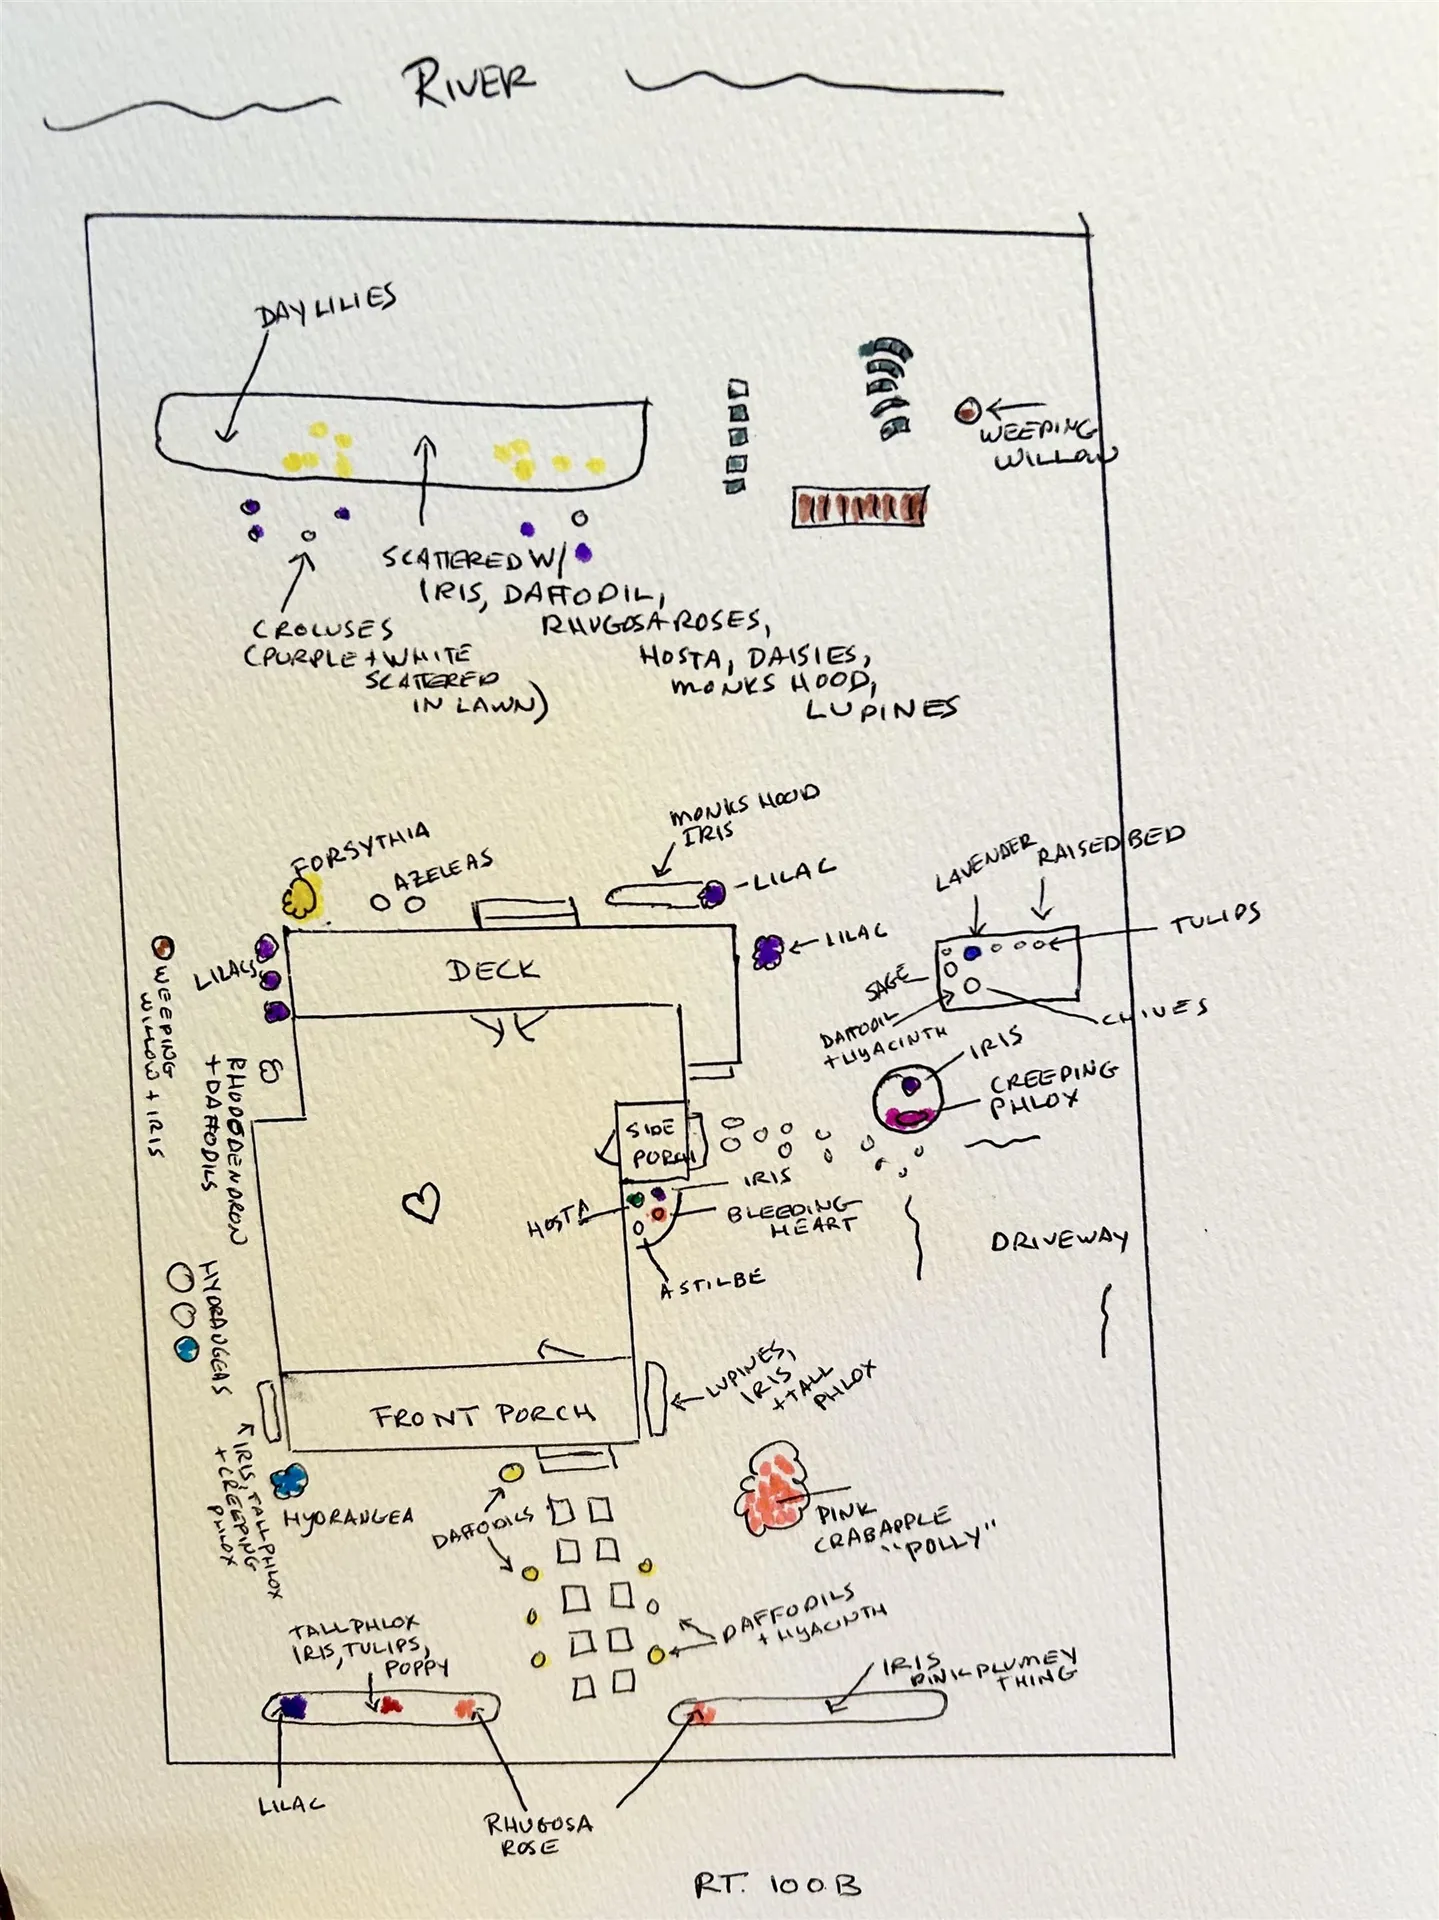 RIVER
DAYLILIES
WEEPING
WILLOW
SCATTERED W/
IRIS, DAFFODIL,
RHUGOSA ROSES,
HOSTA, DAISIES,
MONKS HOOD,
LUPINES
CROCUSES
(PURPLE + WHITE
SCATTERED
IN LAWN)
MONKS HOOD
IRIS
FORSYTHIA
AZELEAS
-LILAC
LAVENDER
RAISED BED
TULIPS
LILAC
LILACS
DECK
SAGE
DAFFODIL
+ HYACINTH
CHIVES
WEEPING
WILLOW + IRIS
IRIS
CREEPING
PHLOX
RHODODENDRON
+ DAFFODILS
SIDE
PORCH
IRIS
HOSTA
BLEEDING
HEART
ASTILBE
DRIVEWAY
HYDRANGEAS
LUPINES,
IRIS
+ TALL
PHLOX
FRONT PORCH
IRIS, TALL PHLOX
+ CREEPING
PHLOX
HYDRANGEA
DAFFODILS
PINK
CRABAPPLE
"POLLY"
DAFFODILS
+ HYACINTH
TALL PHLOX
IRIS, TULIPS,
POPPY
IRIS
PINK PLUMEY
THING
LILAC
RHUGOSA
ROSE
RT. 100B